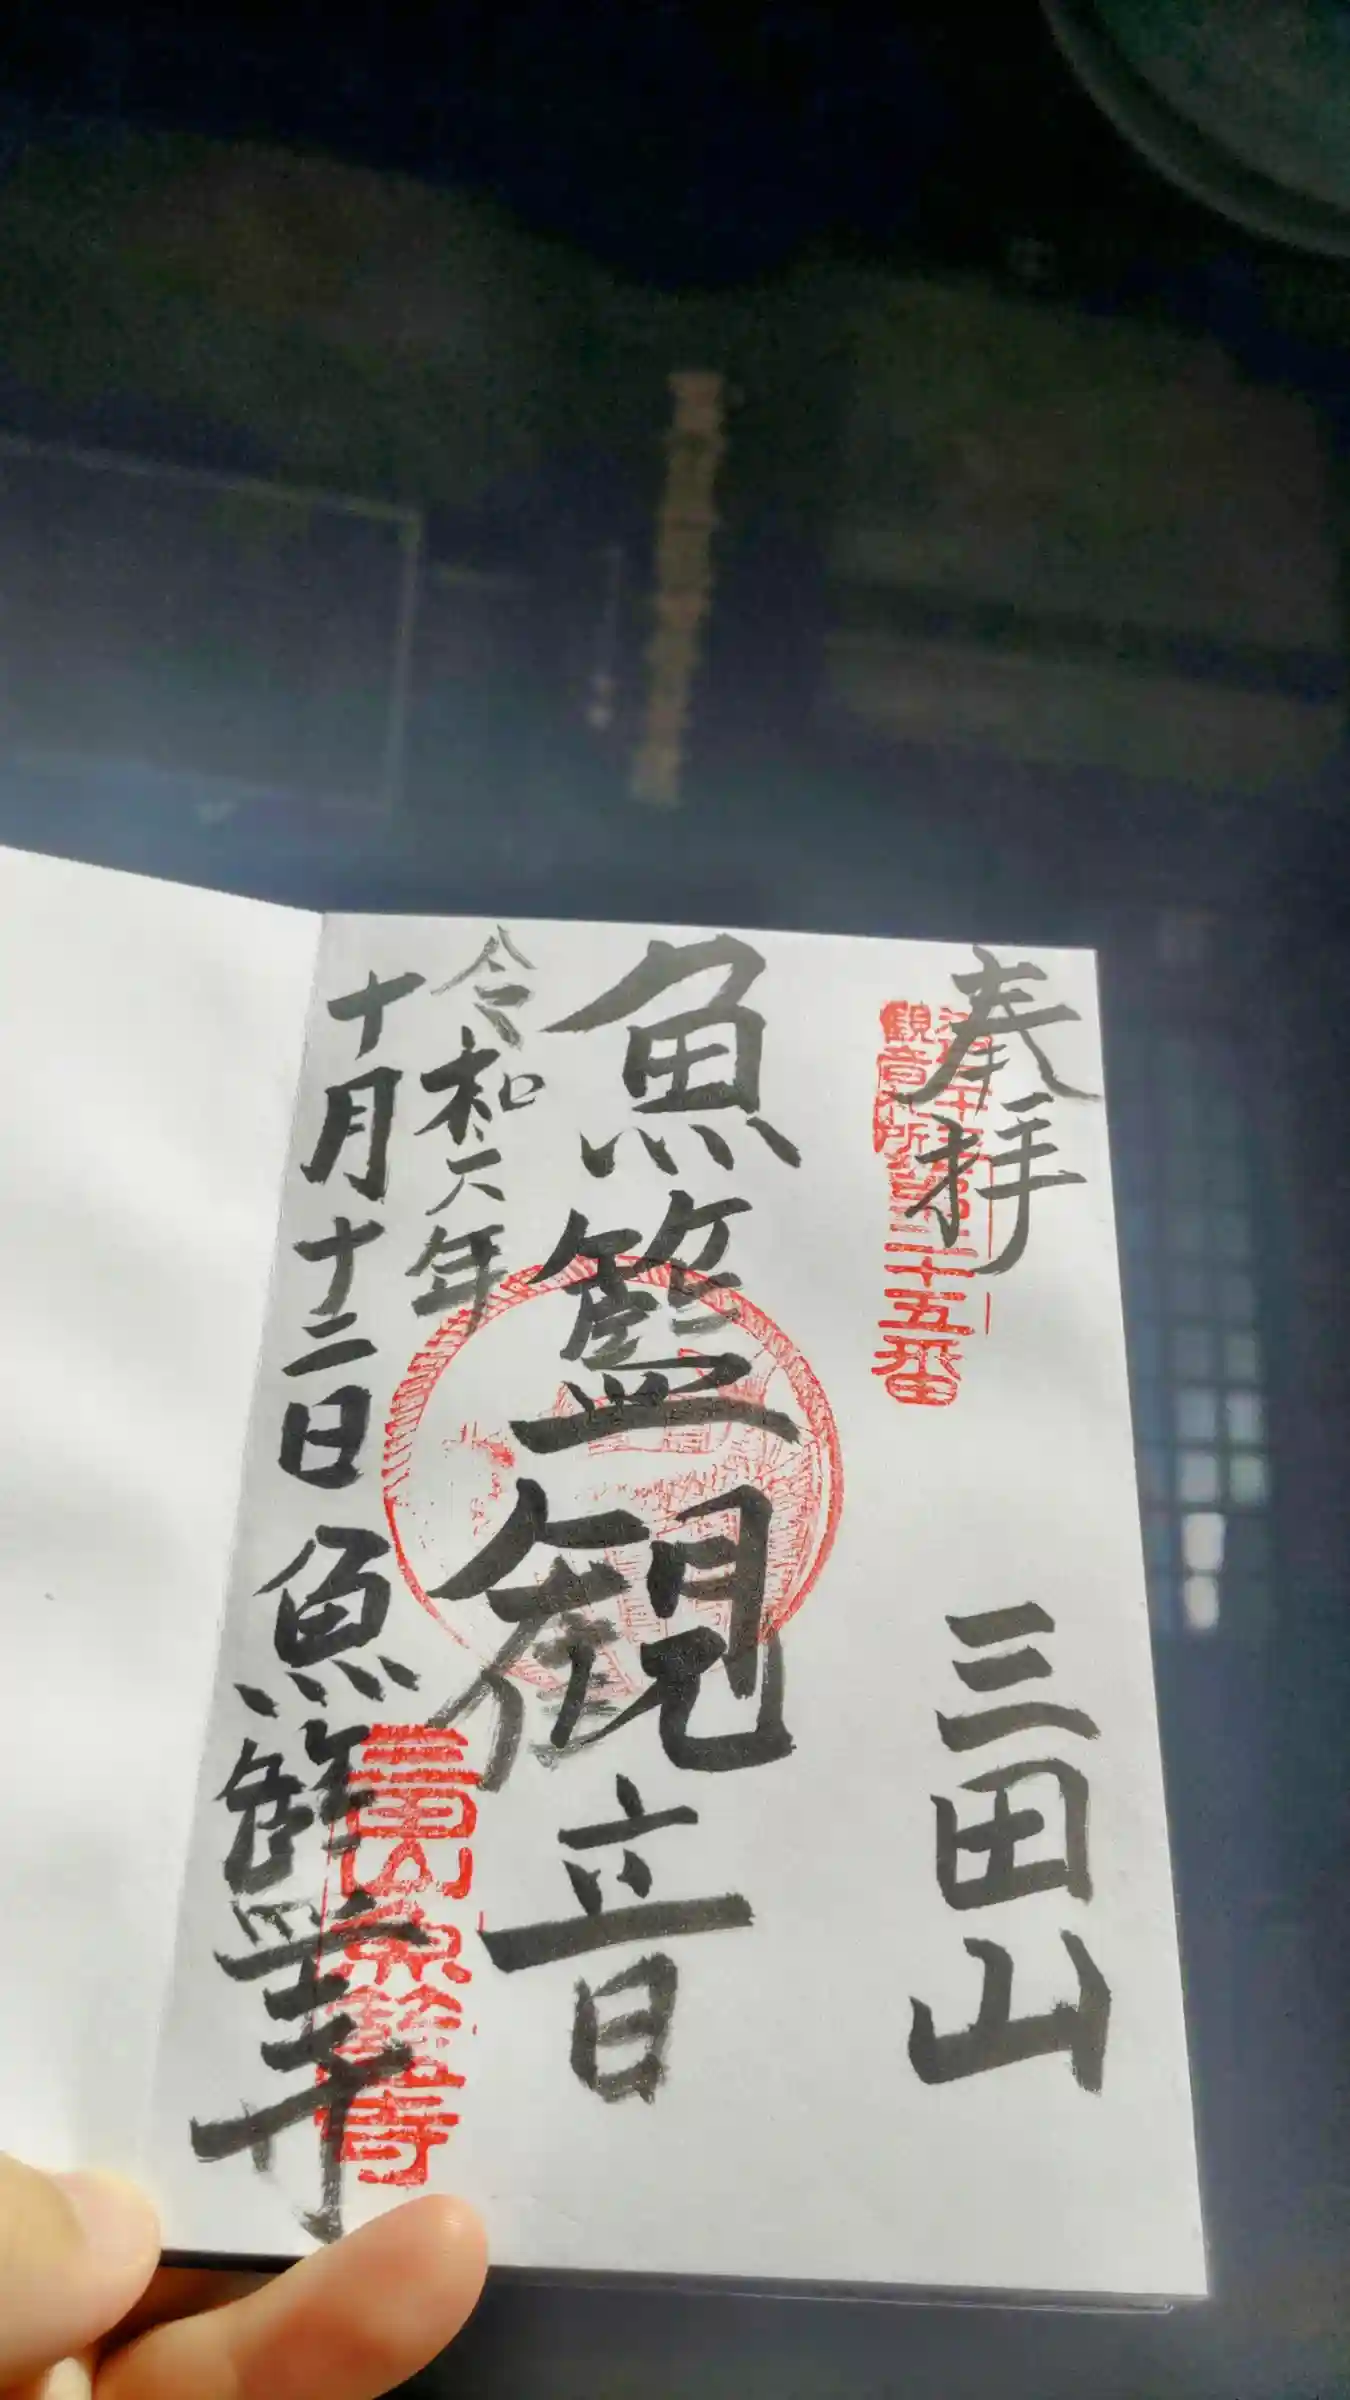 奉拝
三田山
観音札所第二十五番
魚籃観音
令和六年
十月十二日
魚籃寺
三田山魚籃寺